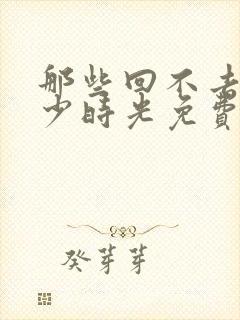 那些回不去
少时光免费
癸芽芽